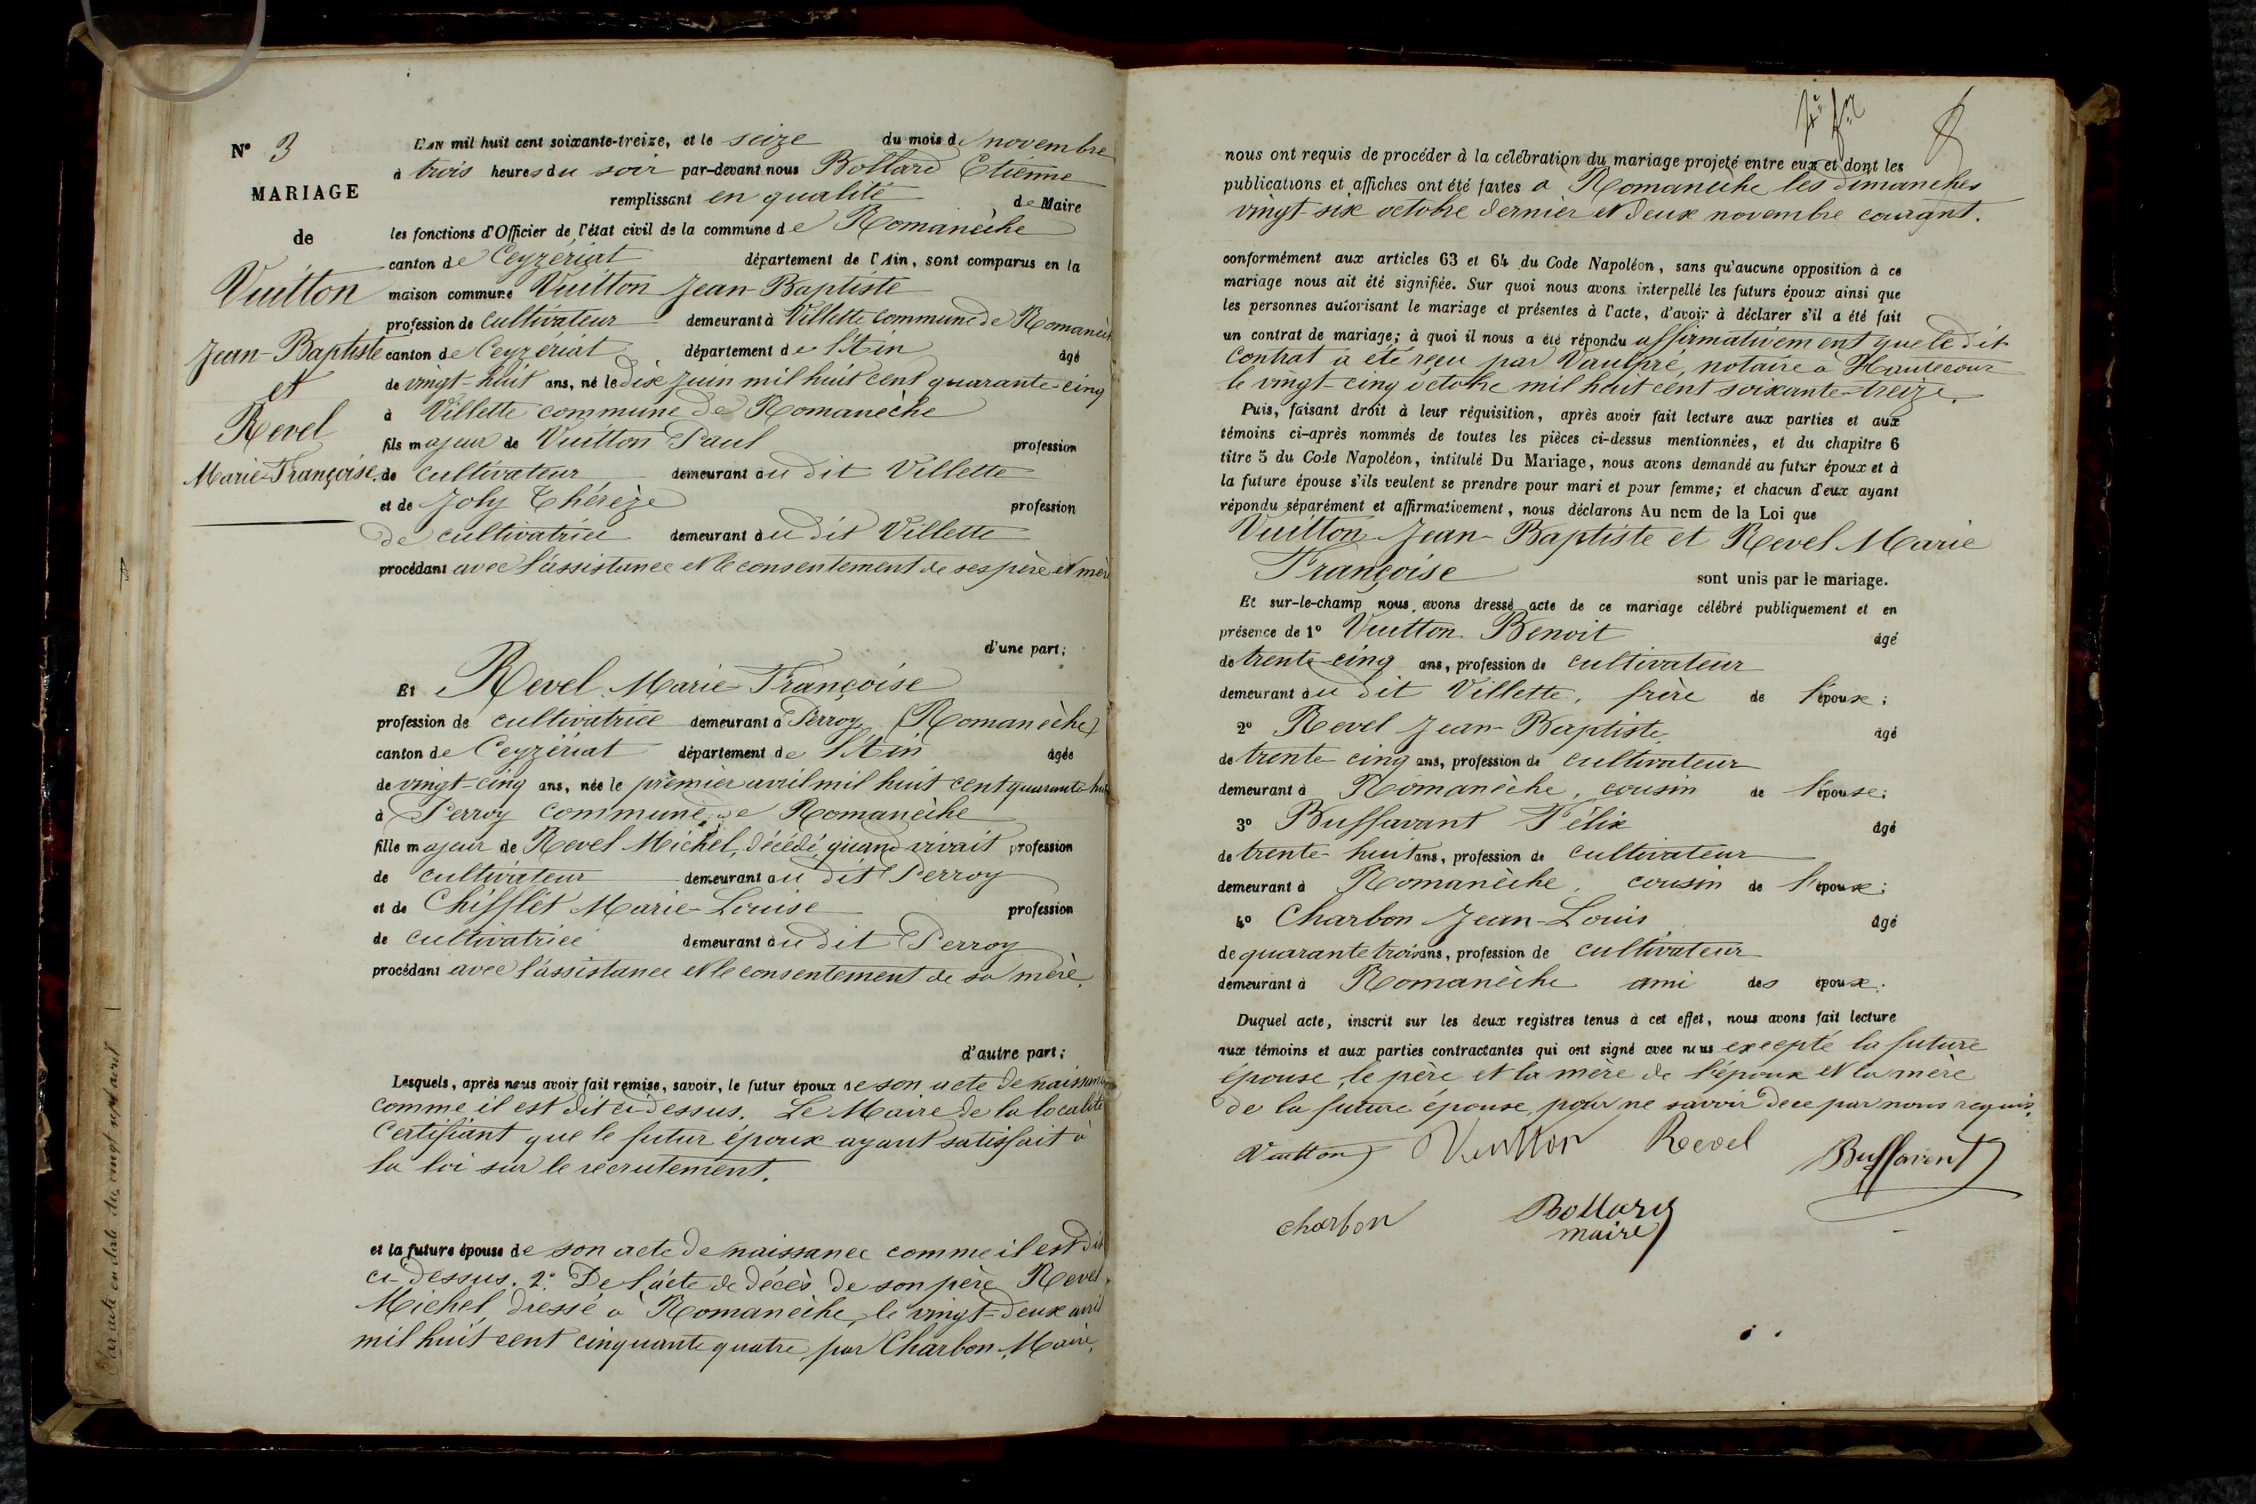 N° 3
MARIAGE
de
Vuitton
Jean-Baptiste
et
Revel
Marie-Françoise.
L'AN mil huit cent soixante-treize, et le seize du mois de novembre
à trois heures du soir par-devant nous Bollard Etienne
remplissant en qualité de Maire
les fonctions d'Officier de l'état civil de la commune de Romanèche
canton de Ceyzériat département de l'Ain, sont comparus en la
maison commune Vuitton Jean-Baptiste
profession de cultivateur demeurant à Villette commune de Romanèch
canton de Ceyzériat département de l'Ain âgé
de vingt-huit ans, né le dix juin mil huit cent quarante-cinq
à Villette commune de Romanèche
fils majeur de Vuitton Paul profession
de cultivateur demeurant au dit Villette
et de Joly Thérèze profession
de cultivatrice demeurant au dit Villette
procédant avec l'assistance et le consentement de ses père et mère
d'une part;
Et Revel Marie Françoise
profession de cultivatrice demeurant à Perroy (Romanèche)
canton de Ceyzériat département de l'Ain âgée
de vingt-cinq ans, née le premier avril mil huit cent quarante-huit
à Perroy commune de Romanèche
fille majeur de Revel Michel, décédé, quand vivait profession
de cultivateur demeurant au dit Perroy
et de Chifflet Marie-Louise profession
de cultivatrice demeurant au dit Perroy
procédant avec l'assistance et le consentement de sa mère.
d'autre part;
Lesquels, après nous avoir fait remise, savoir, le futur époux de son acte de naissance
comme il est dit ci-dessus. Le Maire de la localité
certifiant que le futur époux ayant satisfait à
la loi sur le recrutement.
et la future épouse de son acte de naissance comme il est dit
ci-dessus. 2° De l'acte de décès de son père Revel
Michel, dressé à Romanèche, le vingt-deux avril
mil huit cent cinquante quatre, par Charbon, Maire,
nous ont requis de procéder à la célébration du mariage projeté entre eux et dont les
publications et affiches ont été faites à Romanèche les dimanches
vingt-six octobre dernier et deux novembre courant.
conformément aux articles 63 et 64 du Code Napoléon, sans qu'aucune opposition à ce
mariage nous ait été signifiée. Sur quoi nous avons interpellé les futurs époux ainsi que
les personnes autorisant le mariage et présentes à l'acte, d'avoir à déclarer s'il a été fait
un contrat de mariage; à quoi il nous a été répondu affirmativement que le dit
Contrat a été reçu par Vaulpré, notaire à Hautecour
le vingt-cinq octobre mil huit cent soixante-treize.
Puis, faisant droit à leur réquisition, après avoir fait lecture aux parties et aux
témoins ci-après nommés de toutes les pièces ci-dessus mentionnées, et du chapitre 6
titre 5 du Code Napoléon, intitulé Du Mariage, nous avons demandé au futur époux et à
la future épouse s'ils veulent se prendre pour mari et pour femme; et chacun d'eux ayant
répondu séparément et affirmativement, nous déclarons Au nom de la Loi que
Vuitton Jean-Baptiste et Revel Marie
Françoise sont unis par le mariage.
Et sur-le-champ nous avons dressé acte de ce mariage célébré publiquement et en
présence de 1° Vuitton Benoit âgé
de trente-cinq ans, profession de cultivateur
demeurant au dit Villette, frère de l'époux;
2° Revel Jean-Baptiste âgé
de trente cinq ans, profession de cultivateur
demeurant à Romanèche, cousin de l'épouse;
3° Buffavant Félix âgé
de trente-huit ans, profession de cultivateur
demeurant à Romanèche, cousin de l'époux;
4° Charbon Jean-Louis âgé
de quarante trois ans, profession de cultivateur
demeurant à Romanèche ami des époux.
Duquel acte, inscrit sur les deux registres tenus à cet effet, nous avons fait lecture
aux témoins et aux parties contractantes qui ont signé avec nous excepté la future
épouse, le père et la mère de l'époux et la mère
de la future épouse, pour ne savoir de ce par nous requis.
Vuitton Vuitton Revel Buffavent
charbon Bollard
maire